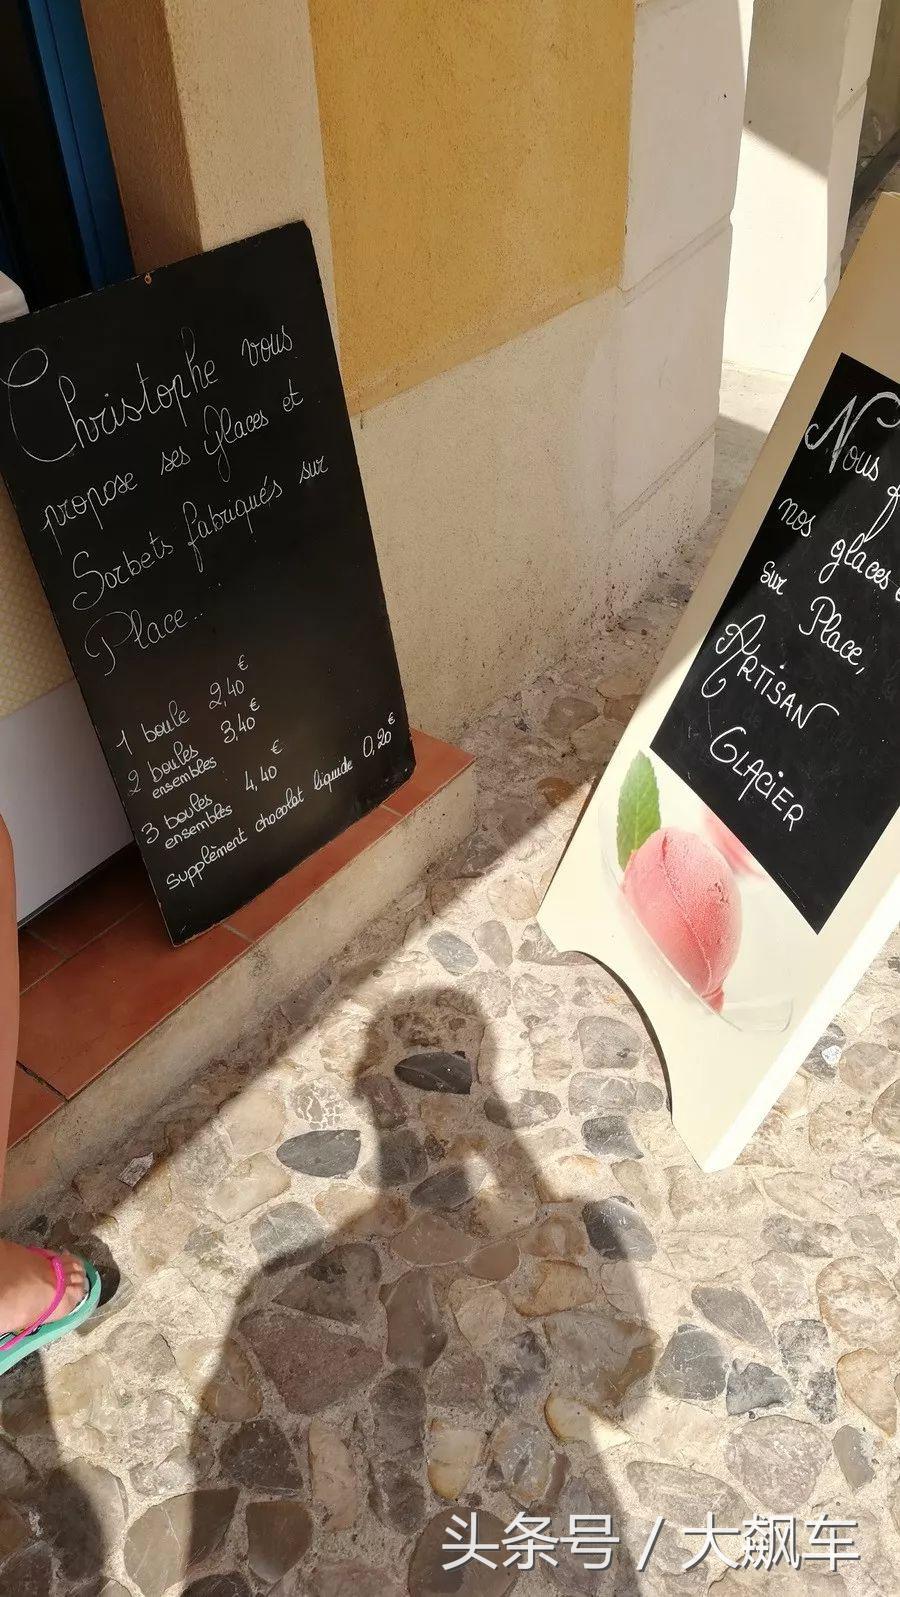 Christophe vous
propose ses Glaces et
Sorbets fabriqués sur
Place...
1 boule 2,40€
2 boules ensembles 3,40€
3 boules ensembles 4,40€
supplèment chocolat liquide 0,20€
Nous
nos glaces
sur Place,
ARTISAN
GLACIER
头条号 / 大飙车